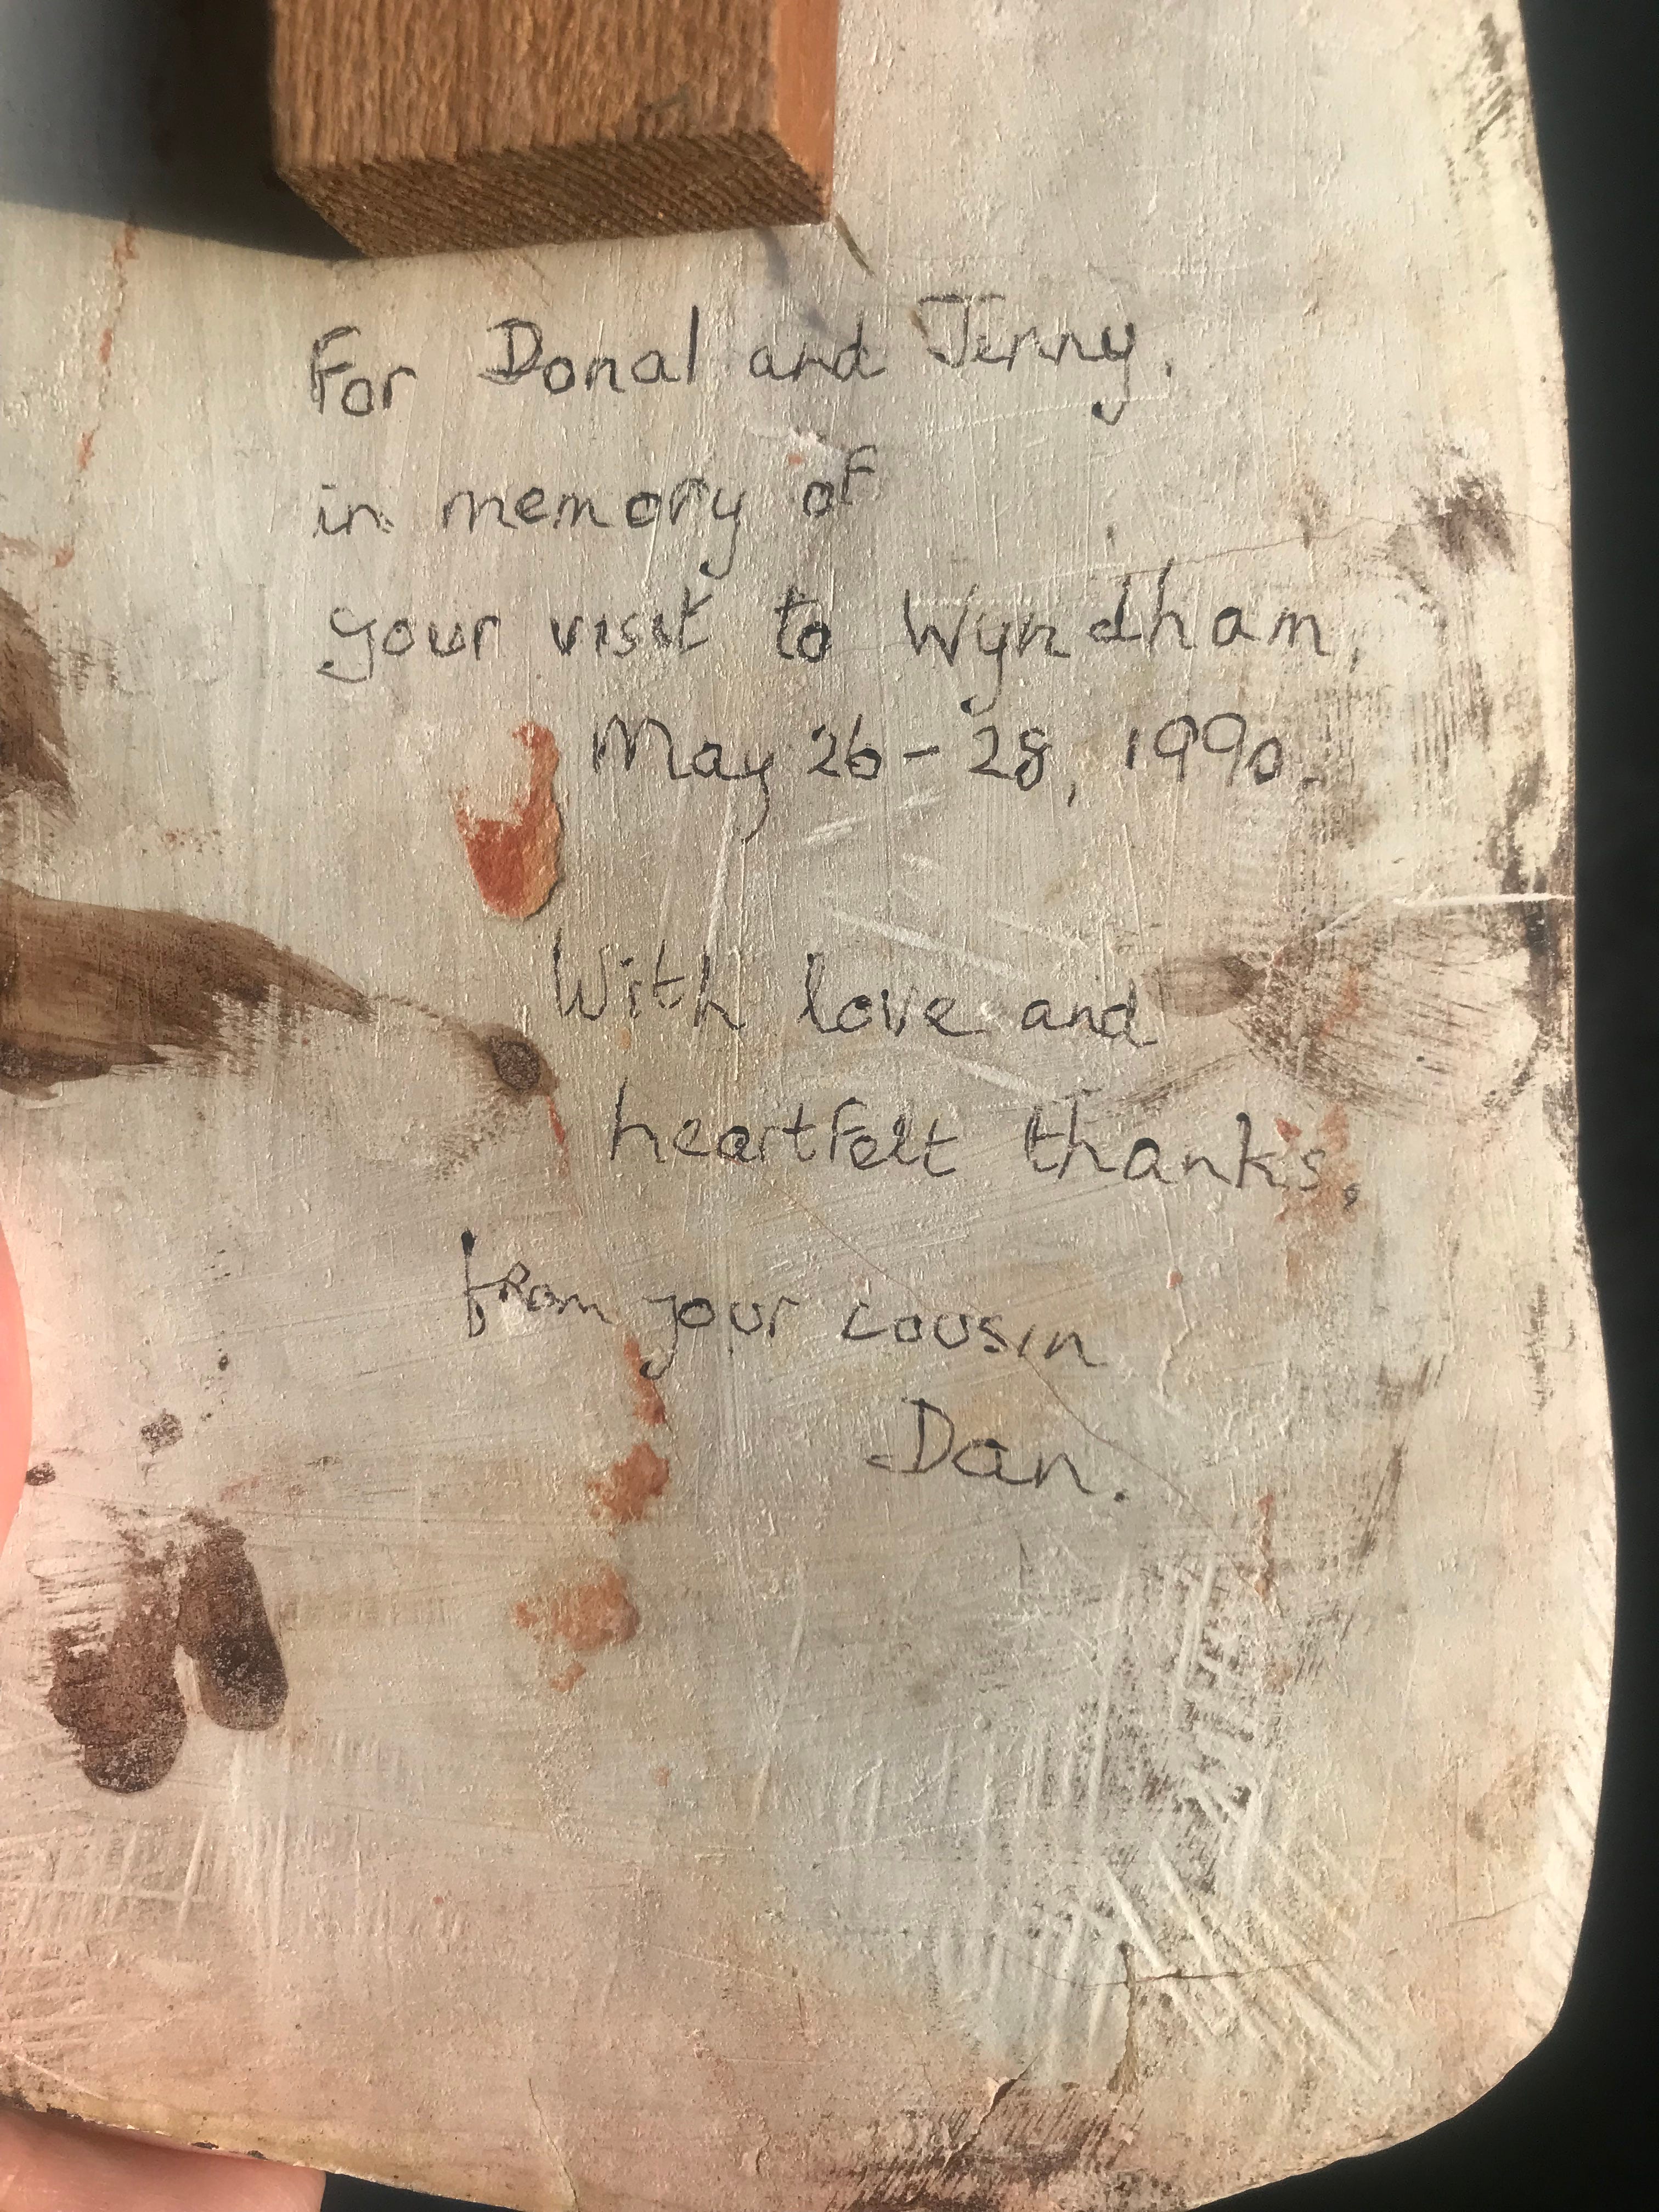 For Donal and Jenny,
in memory of
your visit to Wyndham,
May 26-28, 1990.
With love and
heartfelt thanks,
from your cousin
Dan.